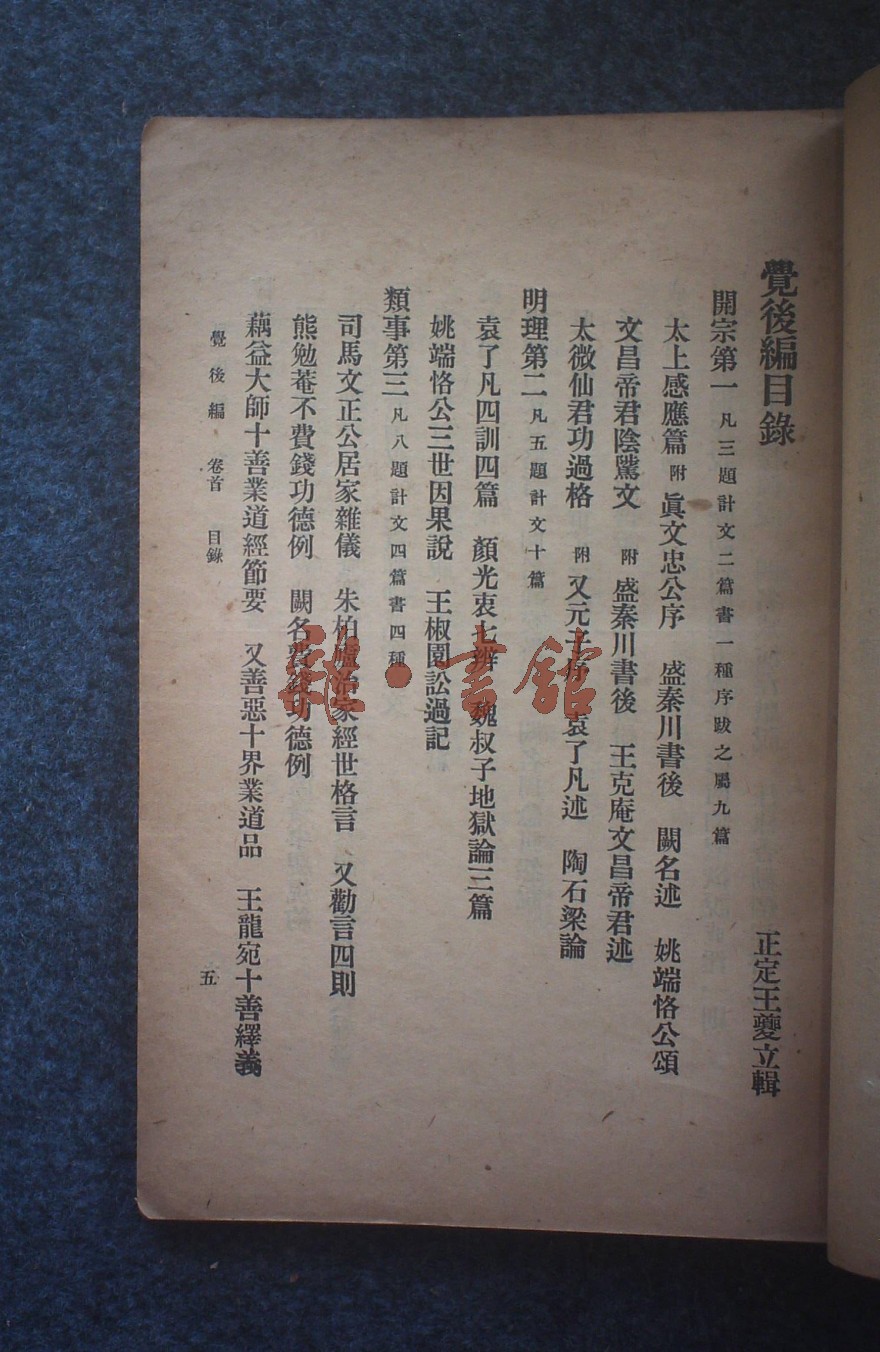 覺後編目錄
正定王夔立輯
開宗第一 凡三題計文二篇書一種序跋之屬九篇
太上感應篇 附 眞文忠公序 盛秦川書後 闕名述 姚端恪公頌
文昌帝君陰騭文 附 盛秦川書後 王克庵文昌帝君述
太微仙君功過格 附 又元子序 袁了凡述 陶石梁論
明理第二 凡五題計文十篇
袁了凡四訓四篇 顏光衷七辨 魏叔子地獄論三篇
姚端恪公三世因果說 王椒園訟過記
類事第三 凡八題計文四篇書四種
司馬文正公居家雜儀 朱柏廬治家經世格言 又勸言四則
熊勉菴不費錢功德例 闕名費錢功德例
藕益大師十善業道經節要 又善惡十界業道品 王龍宛十善繹義
覺後編 卷首 目錄
五
雜·書館